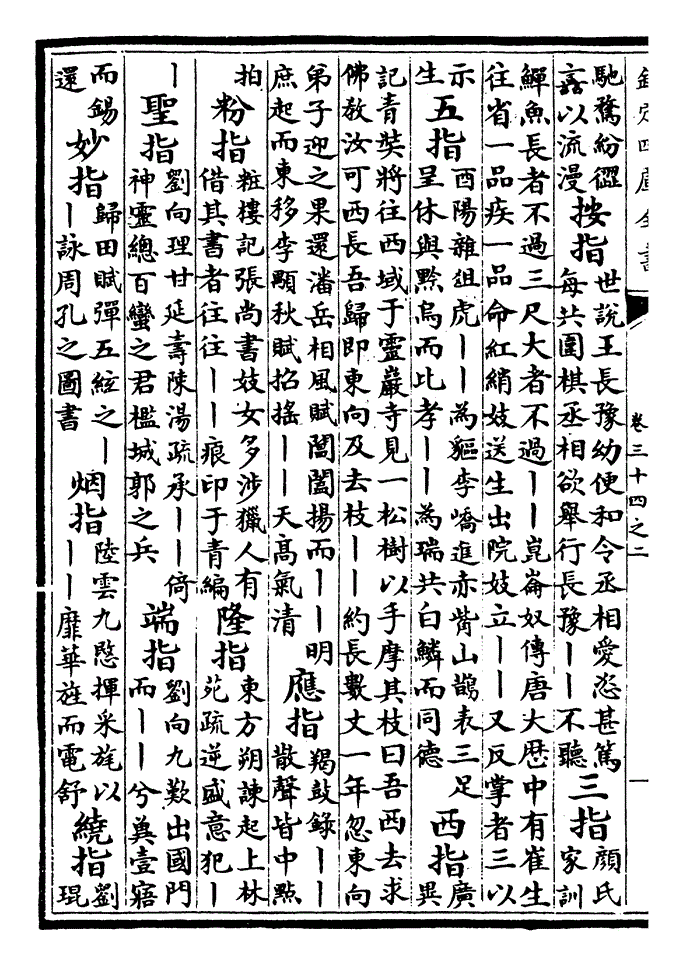 欽定四庫全書 卷三十四之二 一
馳騖紛澀譶以流漫 按指 世說王長豫幼便和令丞相愛恣甚篤每共圍棋丞相欲舉行長豫丨丨不聽 三指 顔氏家訓
鱓魚長者不過三尺大者不過丨丨崑崙奴傳唐大歷中有崔生
往省一品疾一品命紅綃妓送生出院妓立丨丨又反掌者三以
示生 五指 酉陽雜俎虎丨丨為貙李嶠進赤觜山鵲表三足呈休與黔烏而比孝丨丨為瑞共白鱗而同德 西指 廣異
記青奘將往西域于靈巖寺見一松樹以手摩其枝曰吾西去求
佛教汝可西長吾歸即東向及去枝丨丨約長數丈一年忽東向
弟子迎之果還潘岳相風賦閶闔揚而丨丨明庶起而東移李顒秋賦招搖丨丨天髙氣清 應指 羯鼓錄丨丨散聲皆中點
拍 粉指 粧樓記張尚書妓女多涉獵人有借其書者往往丨丨痕印于青編 隆指 東方朔諫起上林苑疏逆盛意犯丨
丨 聖指 劉向理甘延壽陳湯疏承丨丨倚神靈總百蠻之君檻城郭之兵 端指 劉向九歎出國門而丨丨兮冀壹寤
而錫還 妙指 歸田賦彈五絃之丨丨詠周孔之圖書 烟指 陸雲九愍揮采旄以丨丨靡華旌而電舒 繞指 劉琨